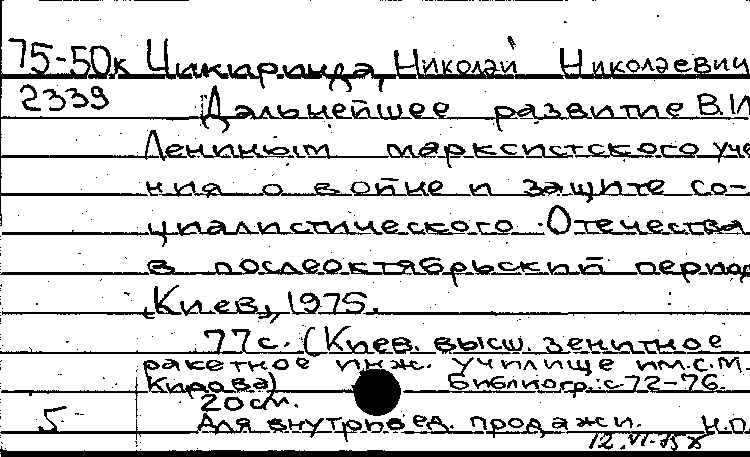 75-50к Чикиринда, Николай Николаевич
2339 Дальнейшее развитие В.И.
Лениным марксистского уче
ния о войне и защите со-
циалистического Отечества
в послеоктябрьский период
„Киев„, 1975.
77с. (Киев. высш. зенитное
ракетное инж. училище им.С.М.
Кирова) Библиогр.: с.72-76.
20см.
5 Для внутривед. продажи. Н.П.
12.VI-75